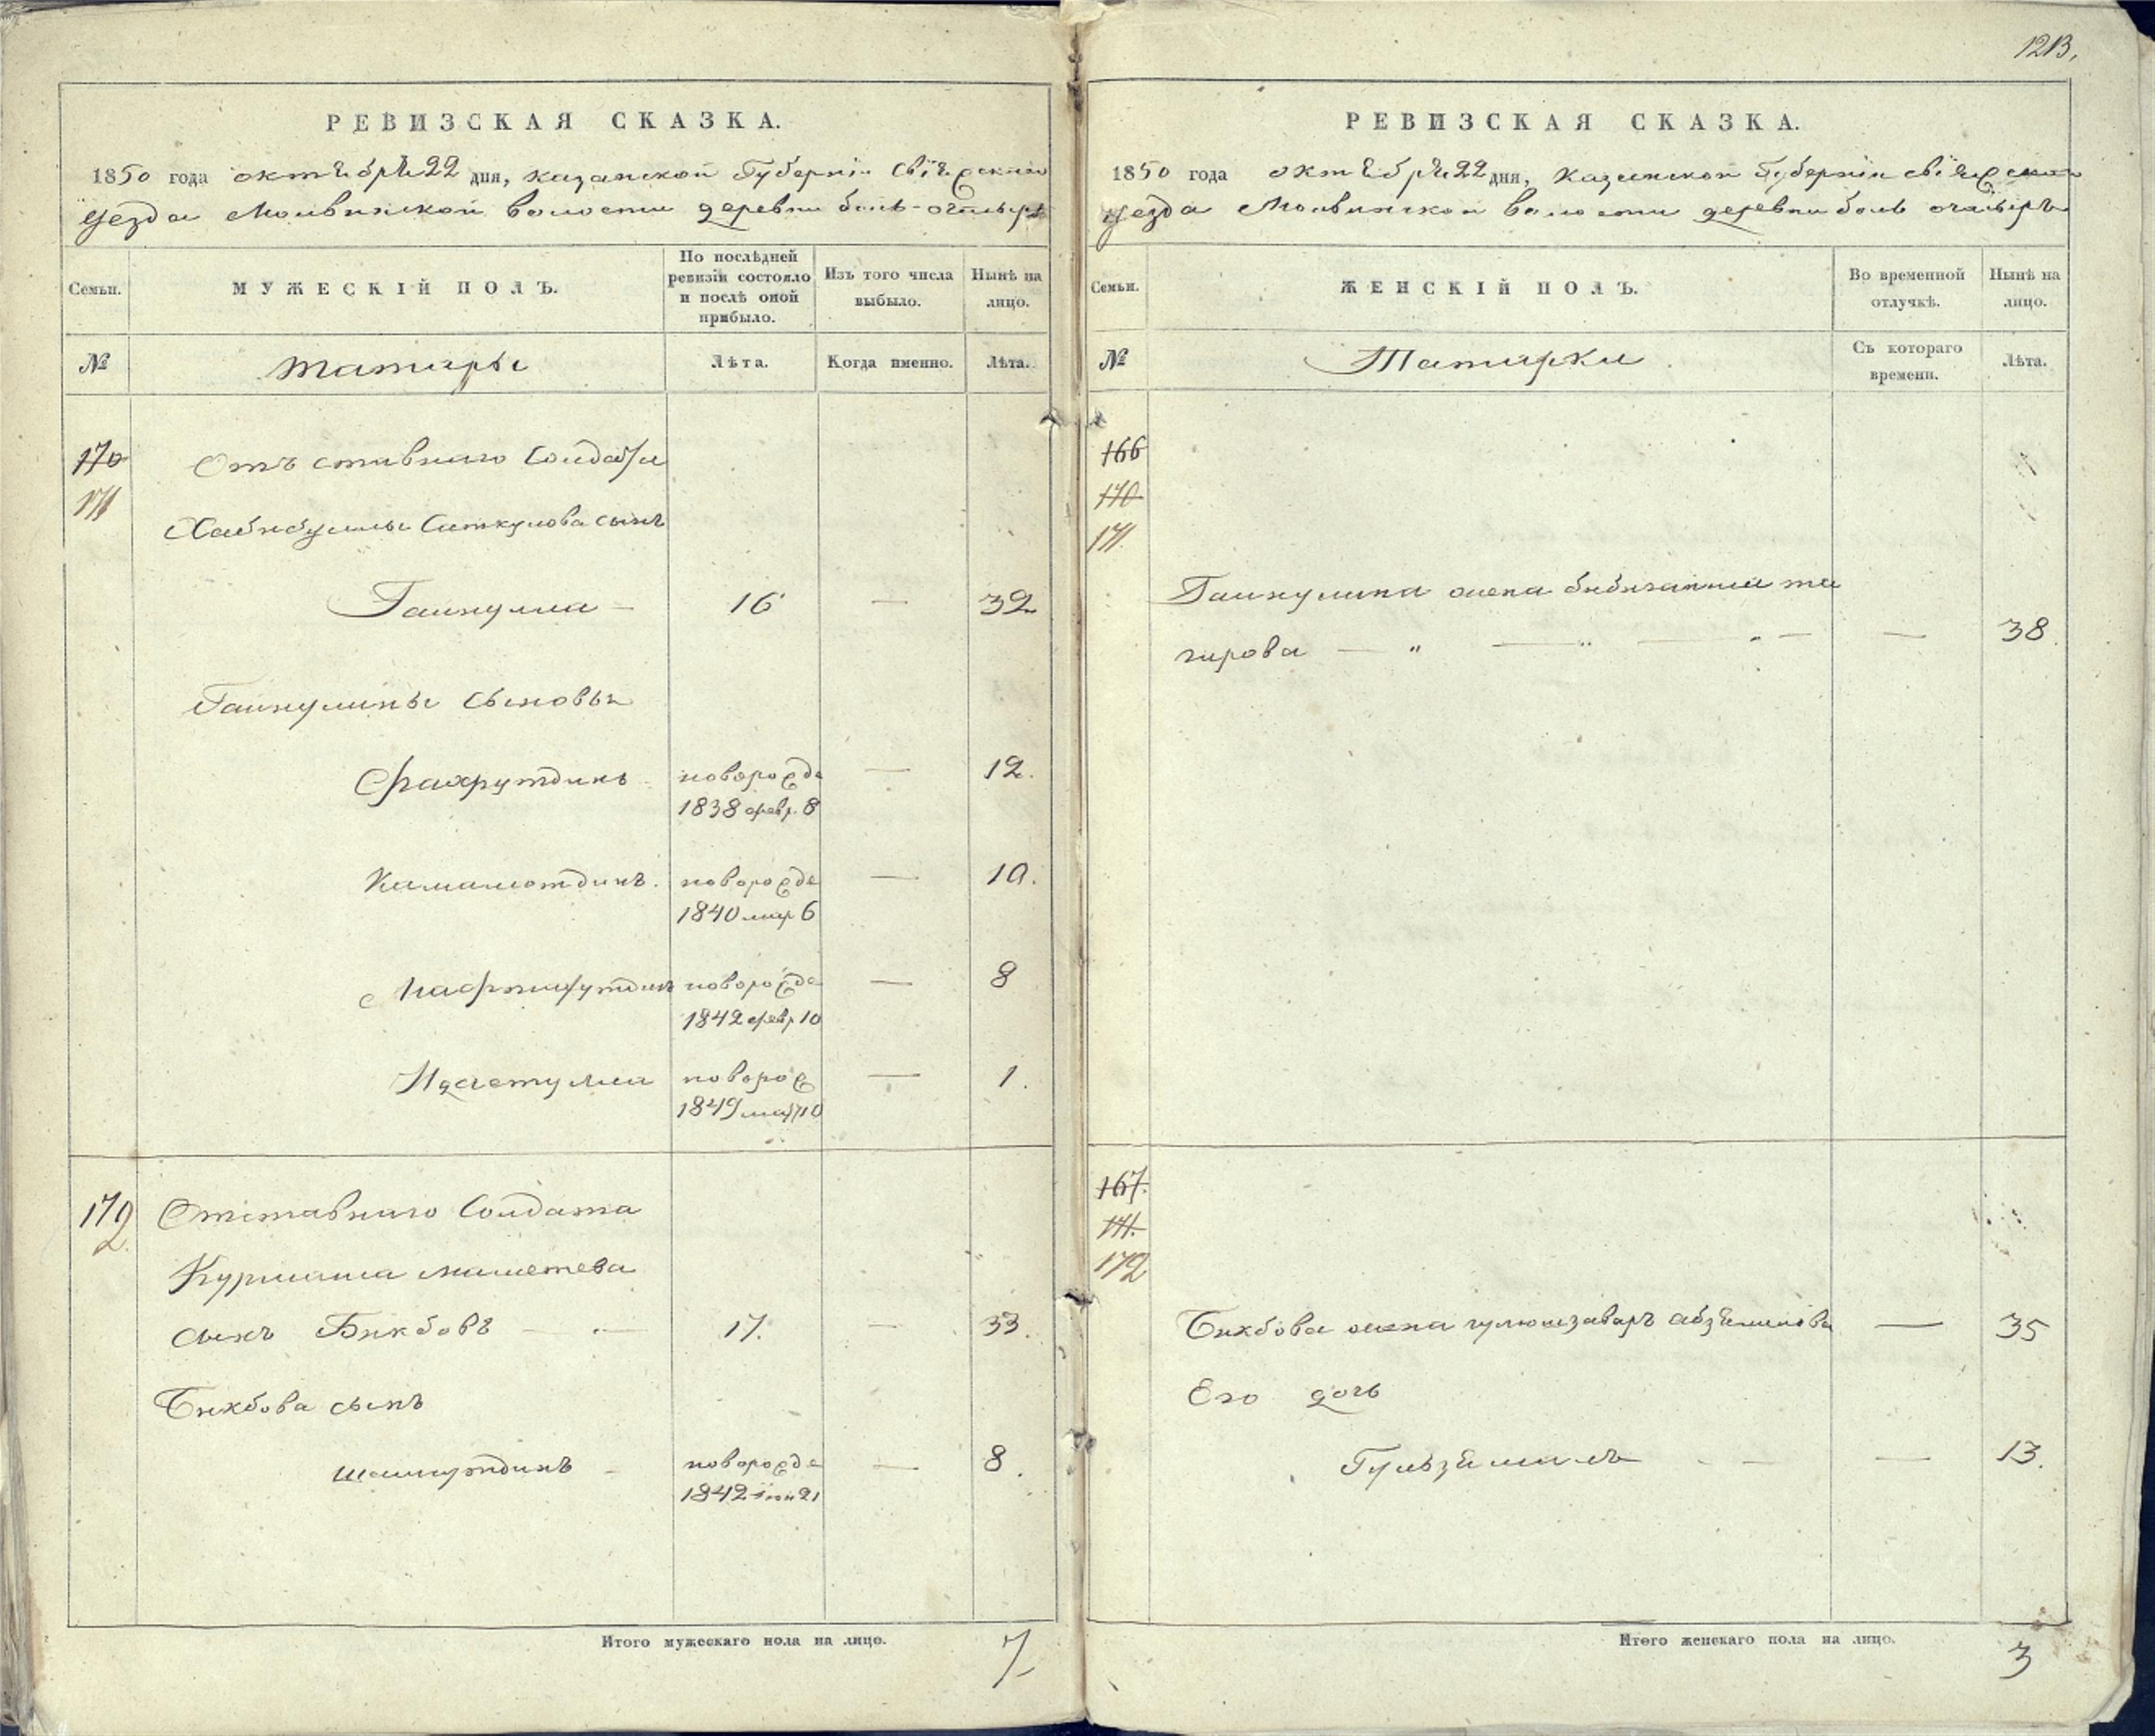 РЕВИЗСКАЯ СКАЗКА.
1850 года октября 22 дня, казанской Губернiи свiяжскаго
уезда Молвинской волости деревни боль-очасырь
Семьи.
МУЖЕСКІЙ ПОЛЪ.
По послѣдней ревизіи состояло и послѣ оной прибыло.
Изъ того числа выбыло.
Нынѣ на лицо.
№
татары
Лѣта.
Когда именно.
Лѣта.
170
171
Отъ ставнаго Солдата
Хабибуллы Саткулова сынъ
Гайнулла — 16 — 32
Гайнулины сыновья
Фахрутдинъ новорожде — 12.
1838 февр. 8
Камалютдинъ. новорожде — 10.
1840 мар 6
новорожде — 8
1842 февр 10
новорож — 1.
1849 мар 10
172 Отставнаго Солдата
Курмаша маметева
сынъ Бикбовъ — 17. — 33.
Бикбова сынъ
шамсутдинъ новорожде — 8.
1842 21
Итого мужескаго пола на лицо. 7
1213.
РЕВИЗСКАЯ СКАЗКА.
1850 года октебря 22 дня, казанской Губернiи свiяжскаго
уезда Молвинской волости деревни боль очасырь
Семьи.
ЖЕНСКІЙ ПОЛЪ.
Во временной отлучкѣ.
Нынѣ на лицо.
№
Татарки
Съ котораго времени.
Лѣта.
166
170
171.
Гайнулина жена
— " — " — — 38.
167.
171.
172
Бикбова жена абзелилова — 35
Его дочь
Гульземаль — — 13.
Итого женскаго пола на лицо. 3